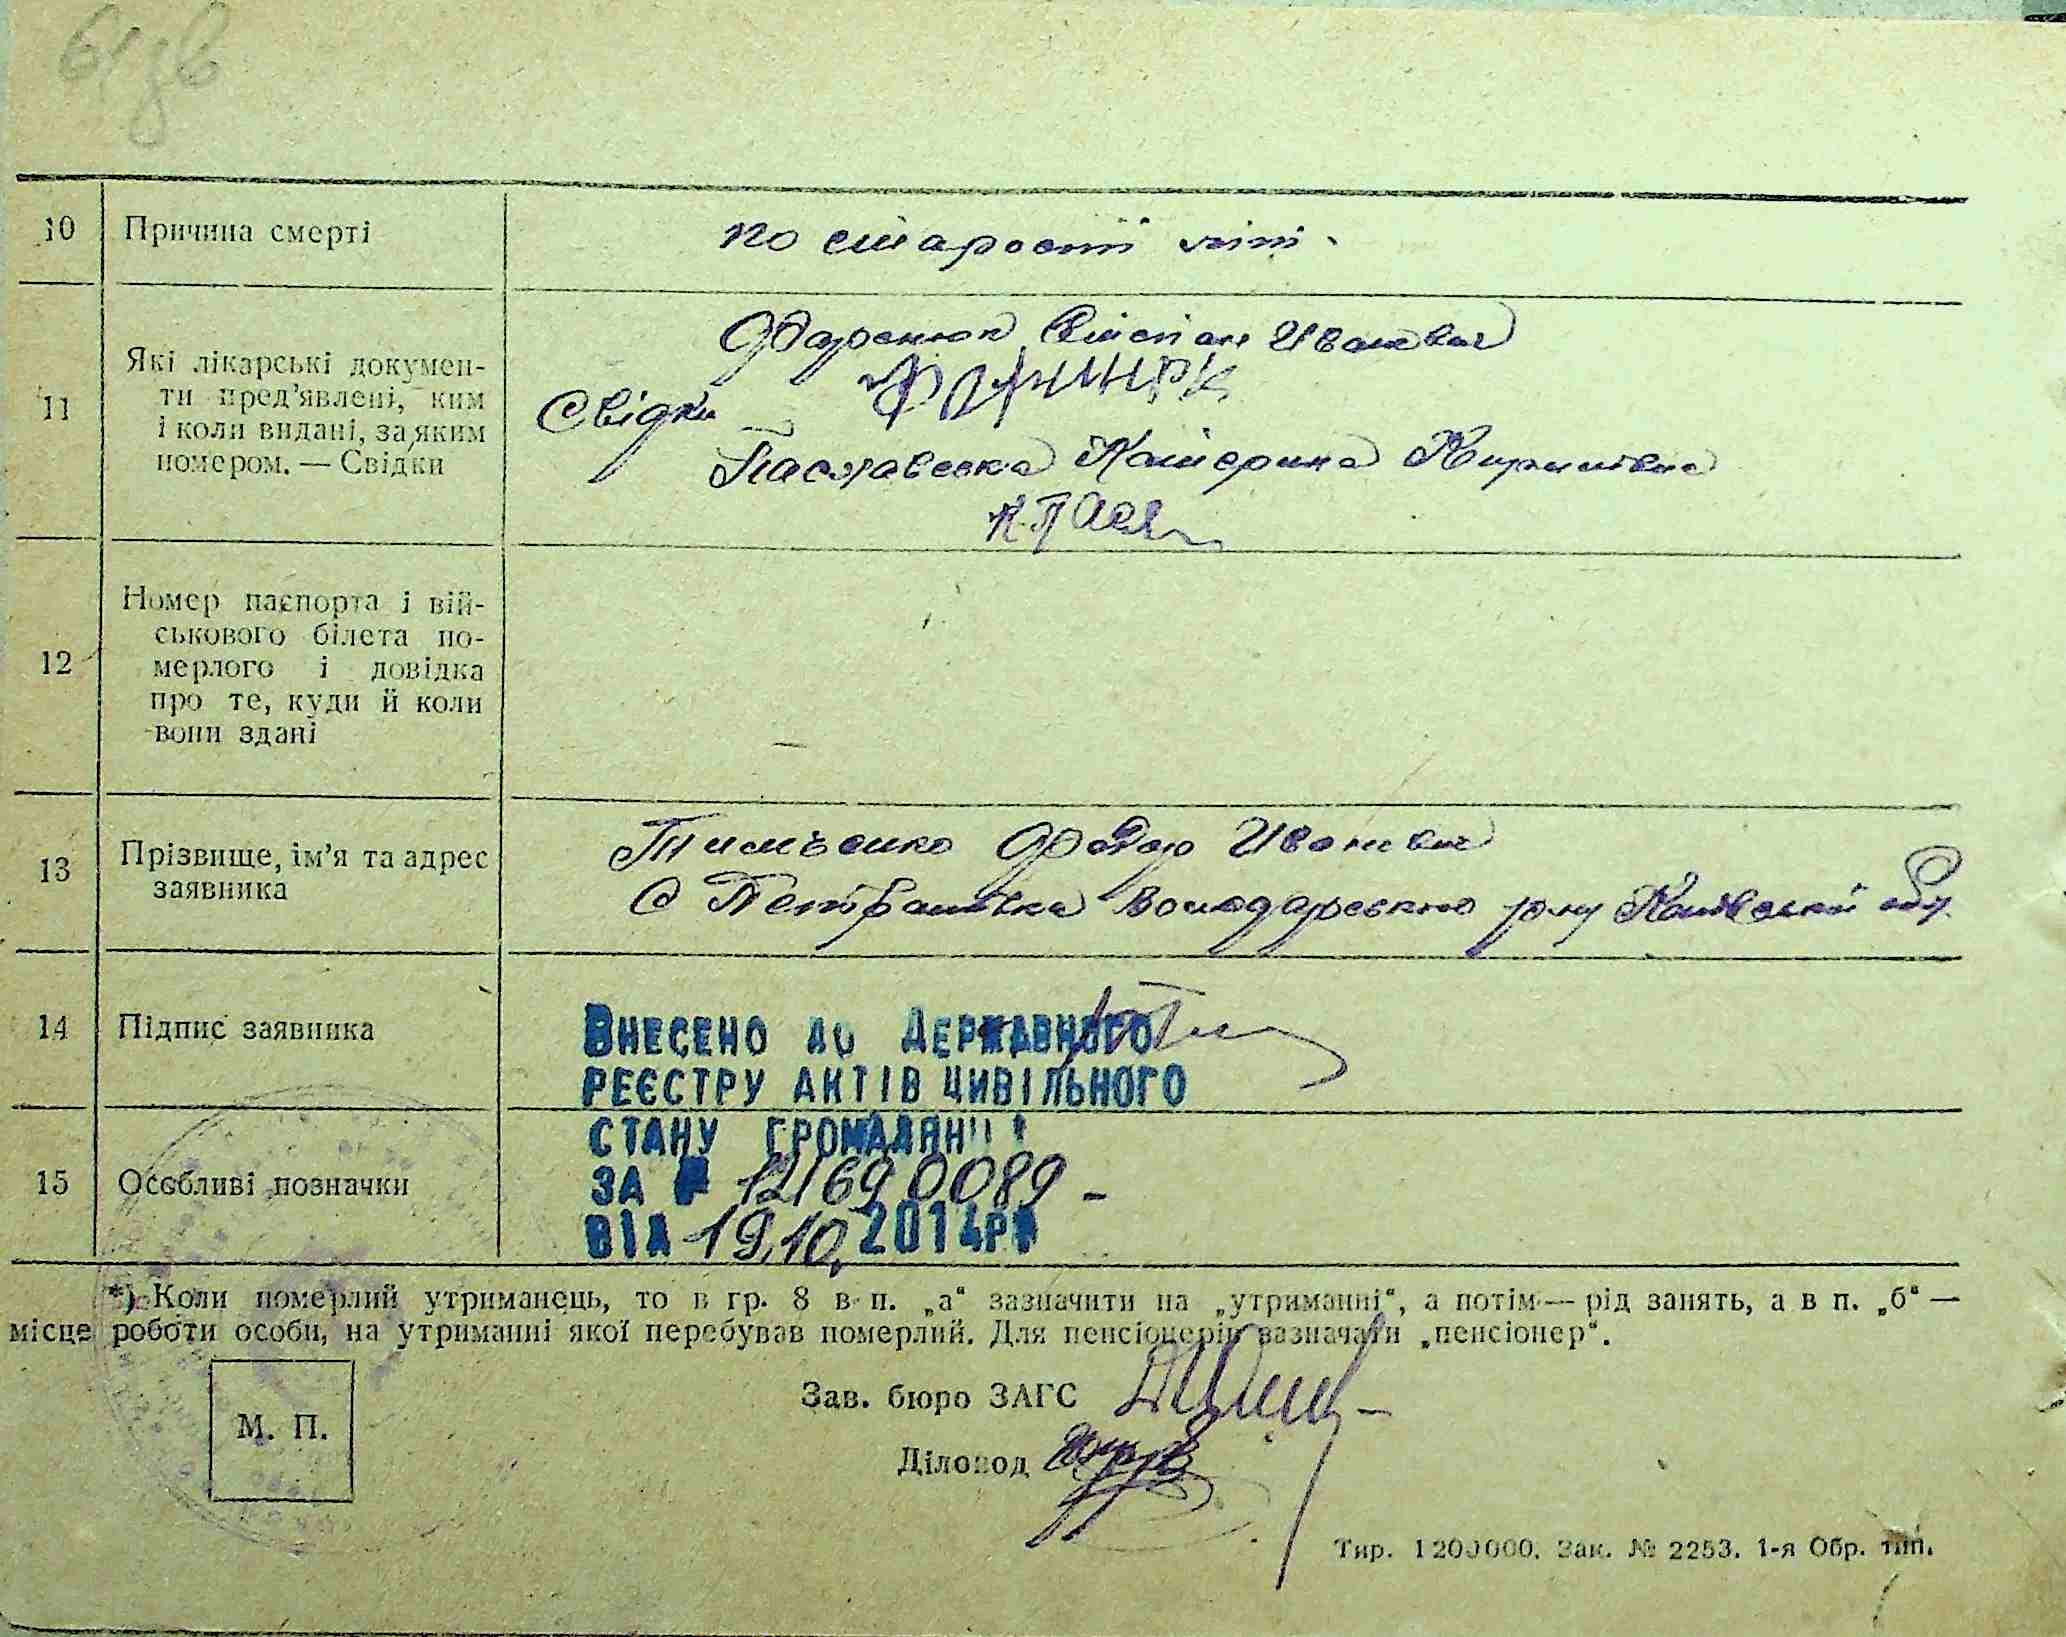 10 Причина смерті по старості літ.
11 Які лікарські докумен-
ти пред'явлені, ким
і коли видані, за яким
номером. — Свідки
Степан Иванович
Свідки
Паславська Катерина Кирилівна
К. Пасл
12 Номер паспорта і вій-
ськового білета по-
мерлого і довідка
про те, куди й коли
вони здані
—
13 Прізвище, ім'я та адрес
заявника
Тимченко Федор Иванович
С Петрашівка Володарського р-ну Київської обл.
14 Підпис заявника
ВНЕСЕНО ДО ДЕРЖАВНОГО
РЕЄСТРУ АКТІВ ЦИВІЛЬНОГО
СТАНУ ГРОМАДЯН
15 Особливі позначки
ЗА № 12169 0089 -
ВІД 19.10. 2014р
*) Коли померлий утриманець, то в гр. 8 в п. „а“ зазначити на „утриманні“, а потім — рід занять, а в п. „б“ —
місце роботи особи, на утриманні якої перебував померлий. Для пенсіонерів зазначати „пенсіонер“.
Зав. бюро ЗАГС
М. П.
Діловод
Тир. 1200000. Зак. № 2253. 1-я Обр. тип.